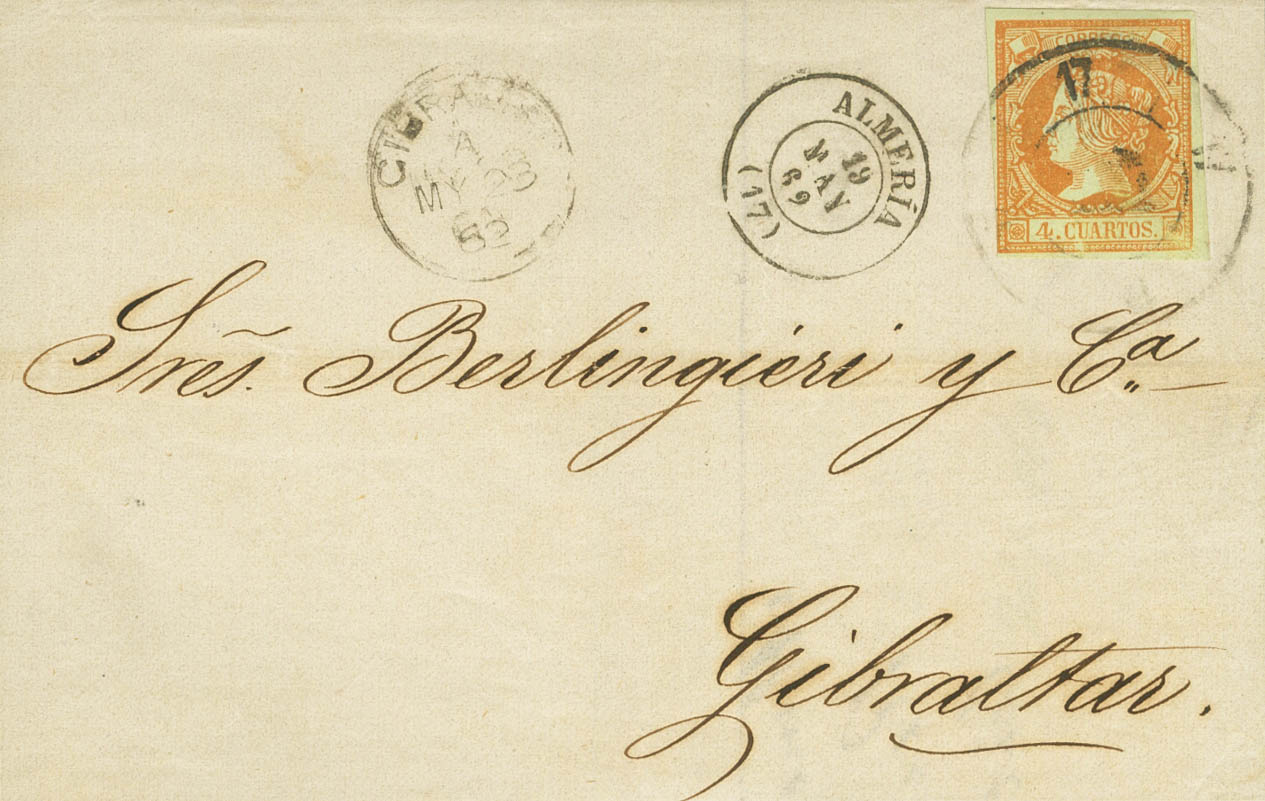 CORREOS
17
4. CUARTOS.
ALMERÍA
19
MAY
62
(17)
GIBRALTAR
A
MY 23
62
Sres. Berlingiéri y Cª
Gibraltar.